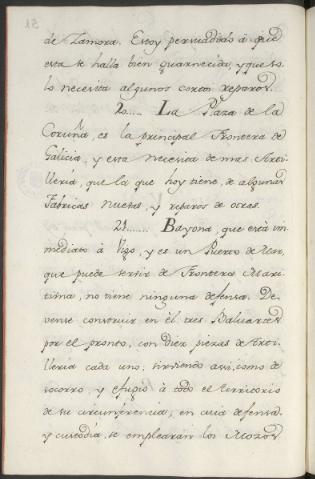 de Zamora. Estoy persuadido à que
esta se halla bien guarnecida, y que so-
lo necesita algunos cortos reparos.
20..... La Plaza de la
Coruña, es la principal Frontera de
Galicia, y esta necesita de mas Arti-
lleria, que la que hoy tiene, de algunas
Fabricas nuevas, y reparos de otras.
21...... Bayona, que està in-
mediato à Vigo, y es un Puerto de Mar,
que puede servir de Frontera Mari-
tima, no tiene ninguna defensa. De-
vense construir en èl tres Baluartes
por el pronto, con Diez piezas de Arti-
lleria cada uno; sirviendo assi, como de
socorro, y efugio à todo el territorio
de su circunferencia; en cuia defensa,
y custodia, se emplearàn los Mozos